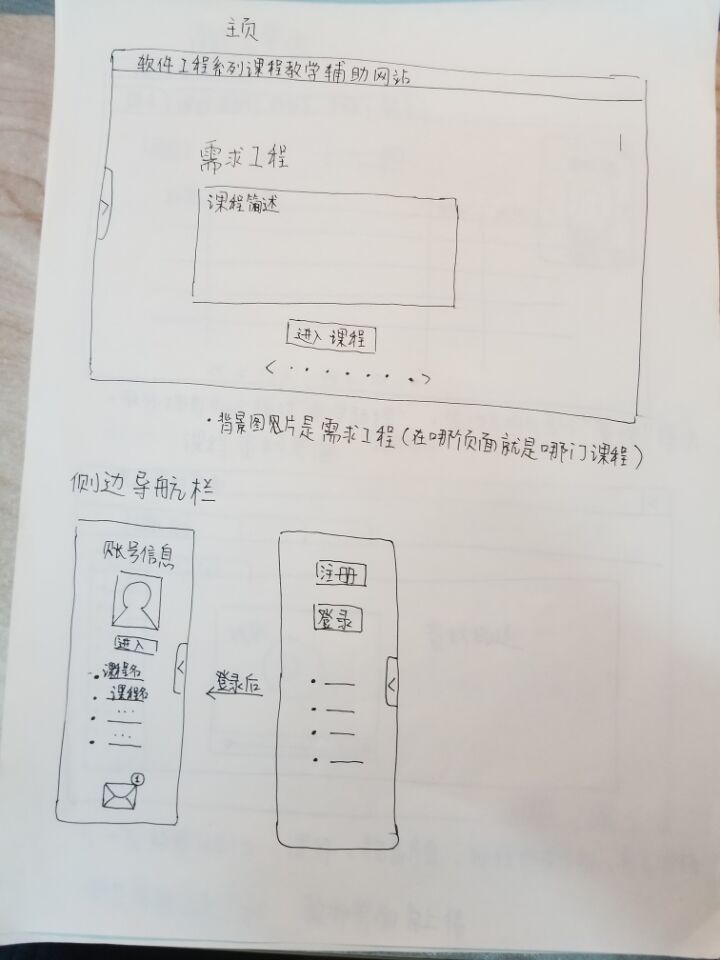 主页
软件工程系列课程教学辅助网站
需求工程
课程简述
进入课程
< · · · · · · >
·背景图照片是需求工程(在哪个页面就是哪门课程)
侧边导航栏
账号信息
进入
·课程名
·课程名
· ...
· ...
1
登录后
注册
登录